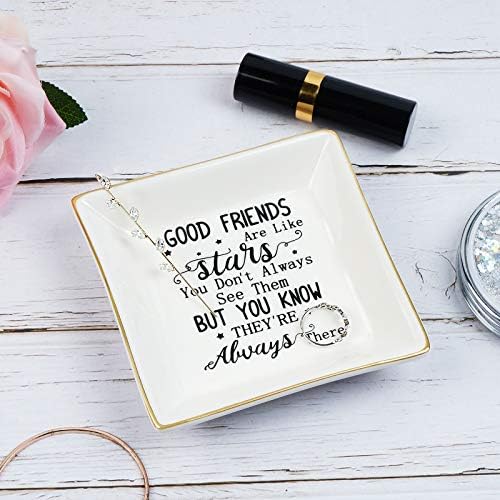 GOOD FRIENDS
Are Like
stars
You Don't Always
See Them
BUT YOU KNOW
THEY'RE
Always There